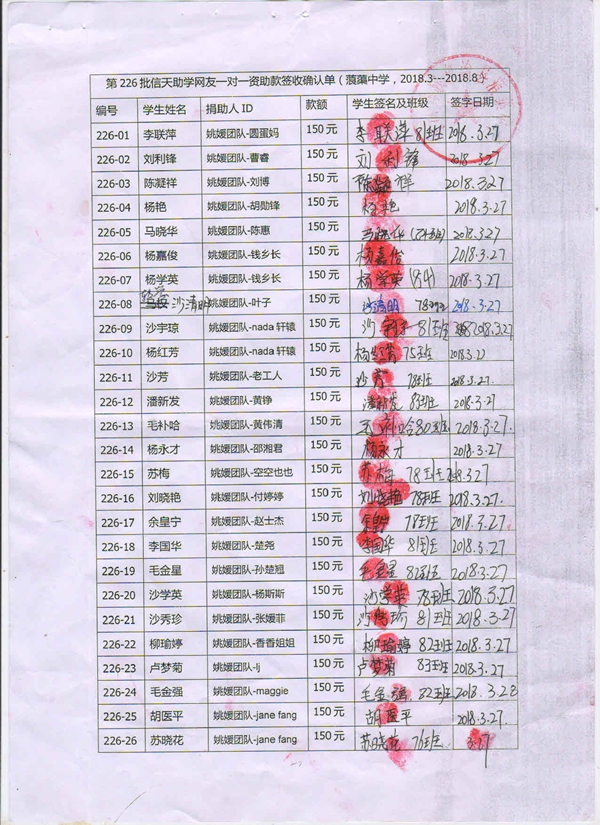 第 226 批信天助学网友一对一资助款签收确认单（蒗蕖中学，2018.3---2018.8）
编号 学生姓名 捐助人 ID 款额 学生签名及班级 签字日期
226-01 李联萍 姚媛团队-圆蛋妈 150 元 李联萍 81班 2018.3.27
226-02 刘利锋 姚媛团队-曹睿 150 元 刘利锋 2018.3.27
226-03 陈凝祥 姚媛团队-刘博 150 元 陈凝祥 2018.3.27
226-04 杨艳 姚媛团队-胡勋锋 150 元 杨艳 2018.3.27
226-05 马晓华 姚媛团队-陈惠 150 元 马晓华 2018.3.27
226-06 杨嘉俊 姚媛团队-钱乡长 150 元 杨嘉俊 2018.3.27
226-07 杨学英 姚媛团队-钱乡长 150 元 杨学英 (84) 2018.3.27
226-08 沙清明 姚媛团队-叶子 150 元 沙清明 2018.3.27
226-09 沙宇琼 姚媛团队-nada 轩辕 150 元 沙宇 81班 2018.3.27
226-10 杨红芳 姚媛团队-nada 轩辕 150 元 杨红芳 75班 2018.3.27
226-11 沙芳 姚媛团队-老工人 150 元 沙芳 78班 2018.3.27
226-12 潘新发 姚媛团队-黄铮 150 元 潘新发 83班 2018.3.27
226-13 毛补哈 姚媛团队-黄伟清 150 元 毛补哈 80班 2018.3.27
226-14 杨永才 姚媛团队-邵湘君 150 元 杨永才 2018.3.27
226-15 苏梅 姚媛团队-空空也也 150 元 苏梅 78班 2018.3.27
226-16 刘晓艳 姚媛团队-付婷婷 150 元 刘晓艳 78班 2018.3.27
226-17 余皇宁 姚媛团队-赵士杰 150 元 余皇宁 78班 2018.3.27
226-18 李国华 姚媛团队-楚尧 150 元 李国华 81班 2018.3.27
226-19 毛金星 姚媛团队-孙楚翘 150 元 毛金星 82班 2018.3.27
226-20 沙学英 姚媛团队-杨斯斯 150 元 沙学英 78班 2018.3.27
226-21 沙秀珍 姚媛团队-张媛菲 150 元 沙秀珍 81班 2018.3.27
226-22 柳瑜婷 姚媛团队-香香姐姐 150 元 柳瑜婷 82班 2018.3.27
226-23 卢梦菊 姚媛团队-lj 150 元 卢梦菊 83班 2018.3.27
226-24 毛金强 姚媛团队-maggie 150 元 毛金强 82班 2018.3.28
226-25 胡医平 姚媛团队-jane fang 150 元 胡医平 2018.3.27
226-26 苏晓花 姚媛团队-jane fang 150 元 苏晓花 76班 3.27